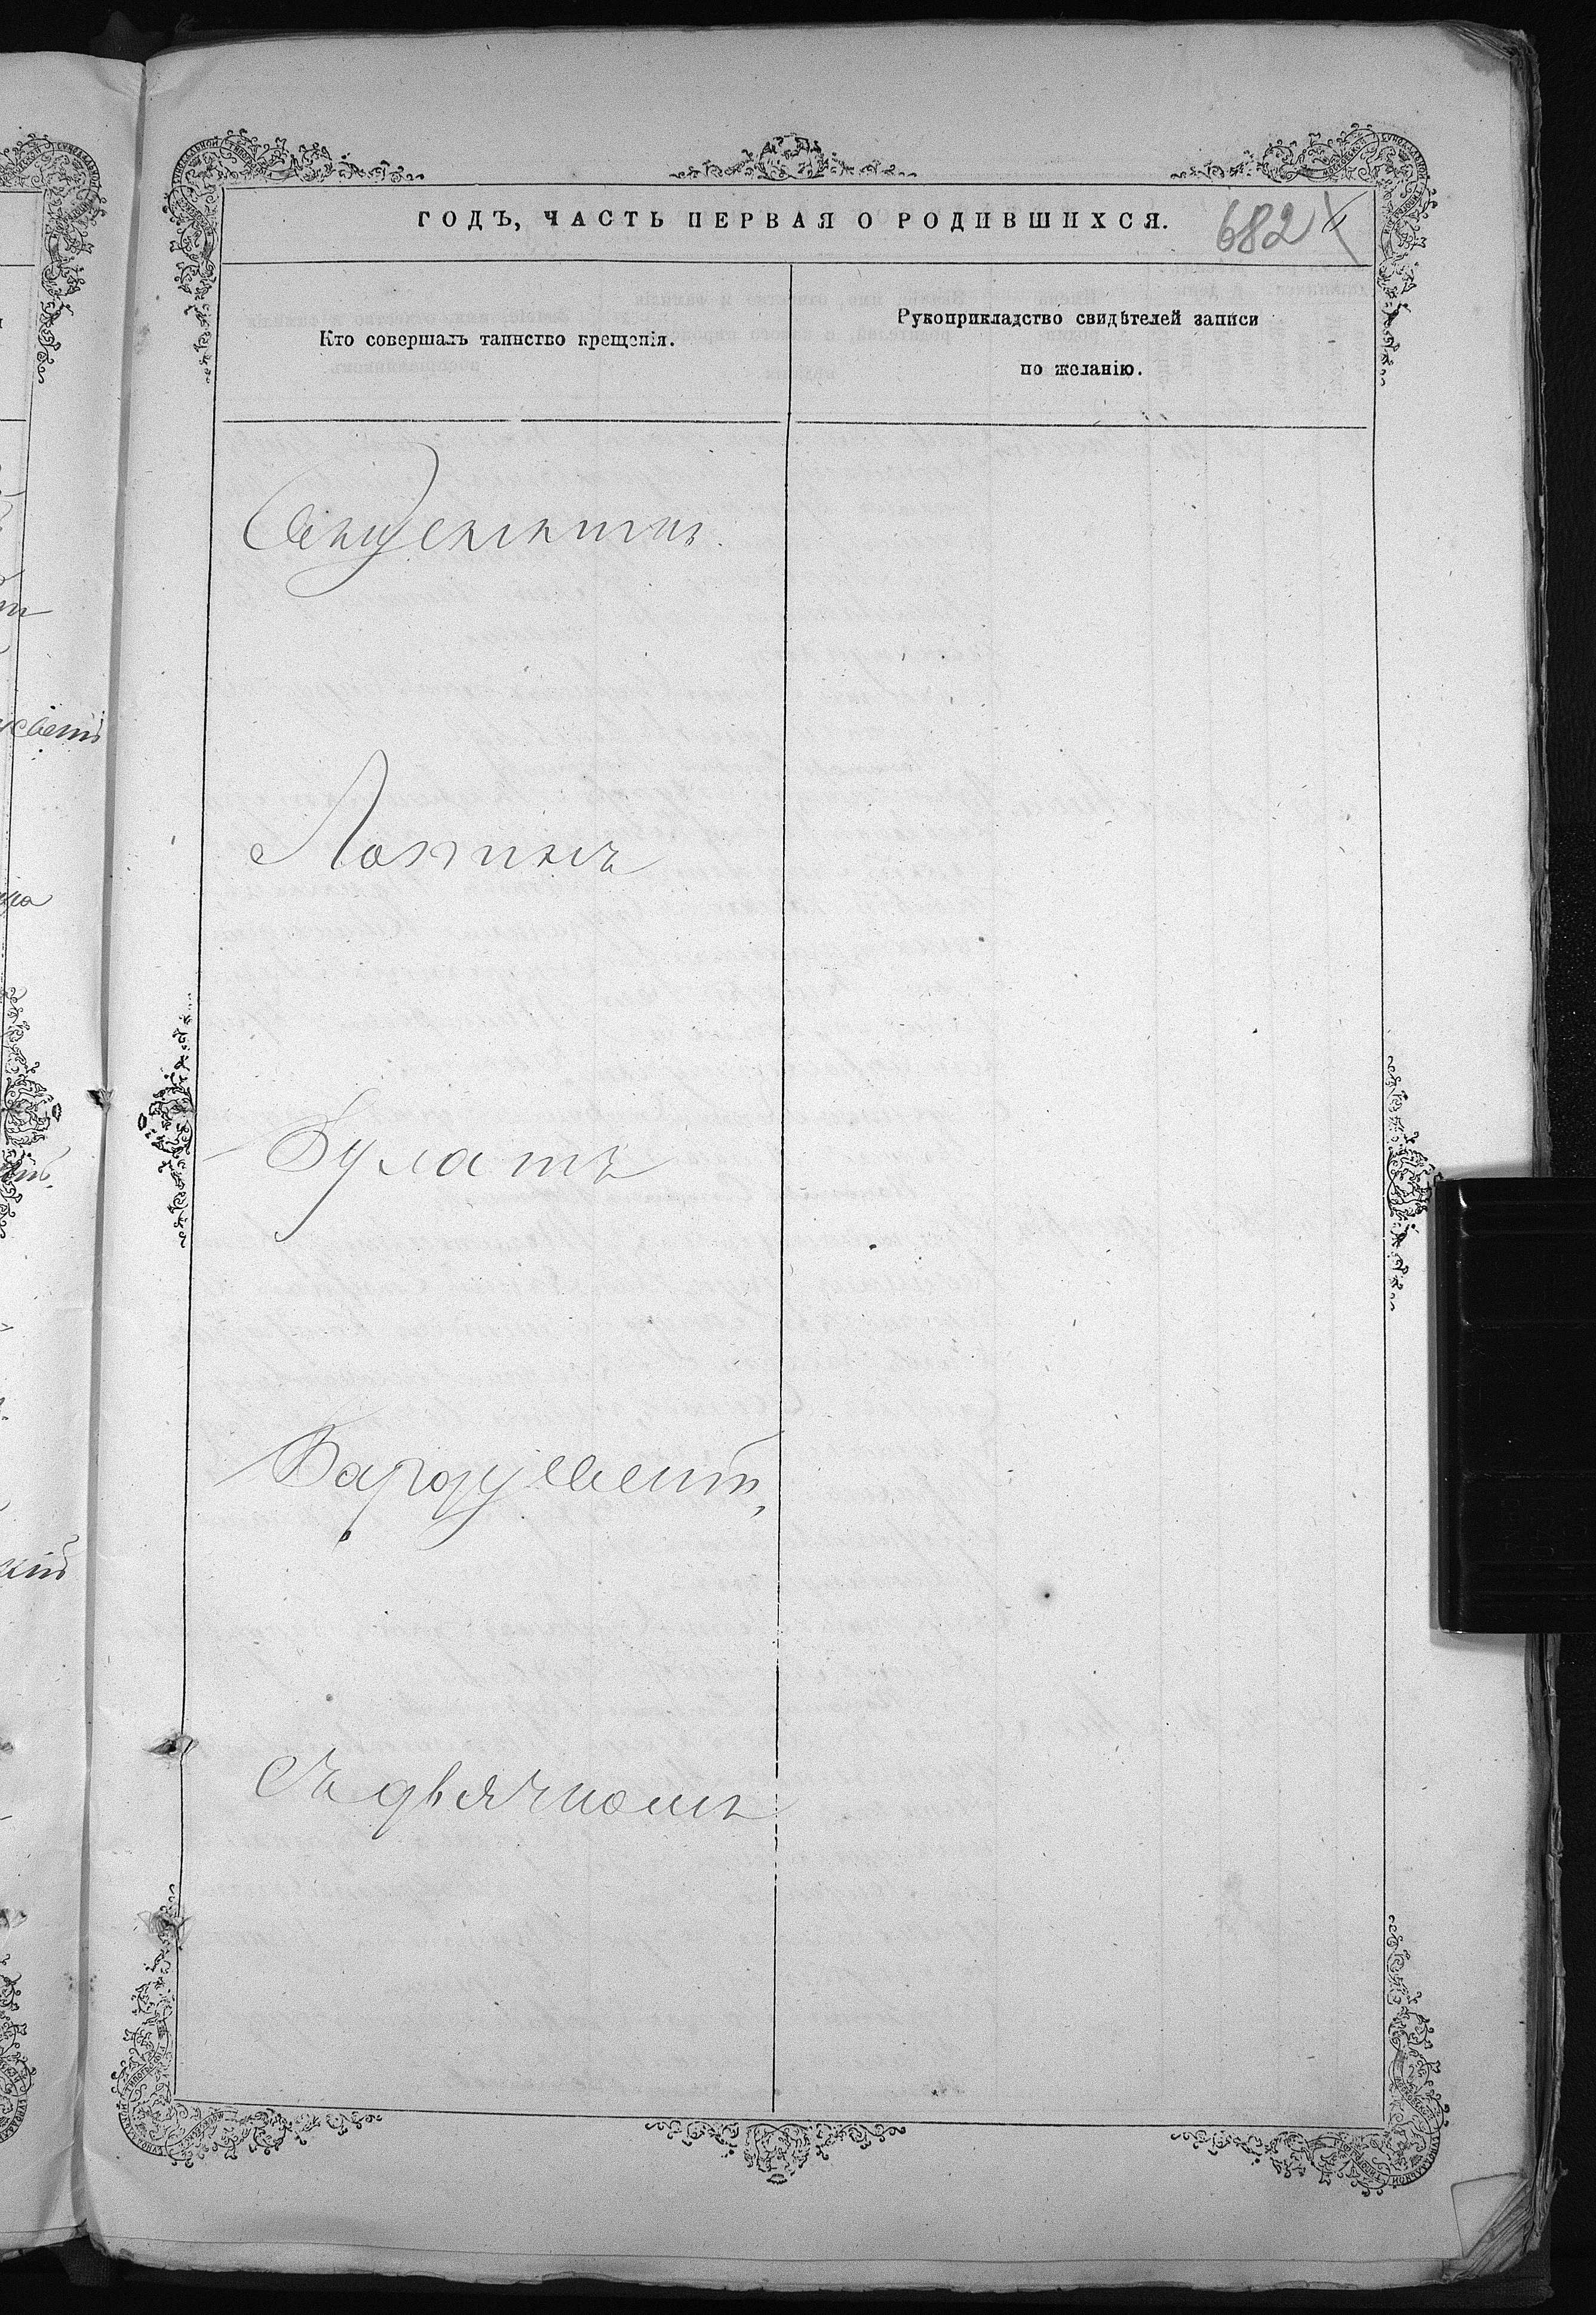 ГОДЪ, ЧАСТЬ ПЕРВАЯ О РОДИВШИХСЯ.
682
Кто совершалъ таинство крещенія.
Рукоприкладство свидѣтелей записи
по желанію.
Священникъ
Логинъ
Булатъ
съ дьячкомъ